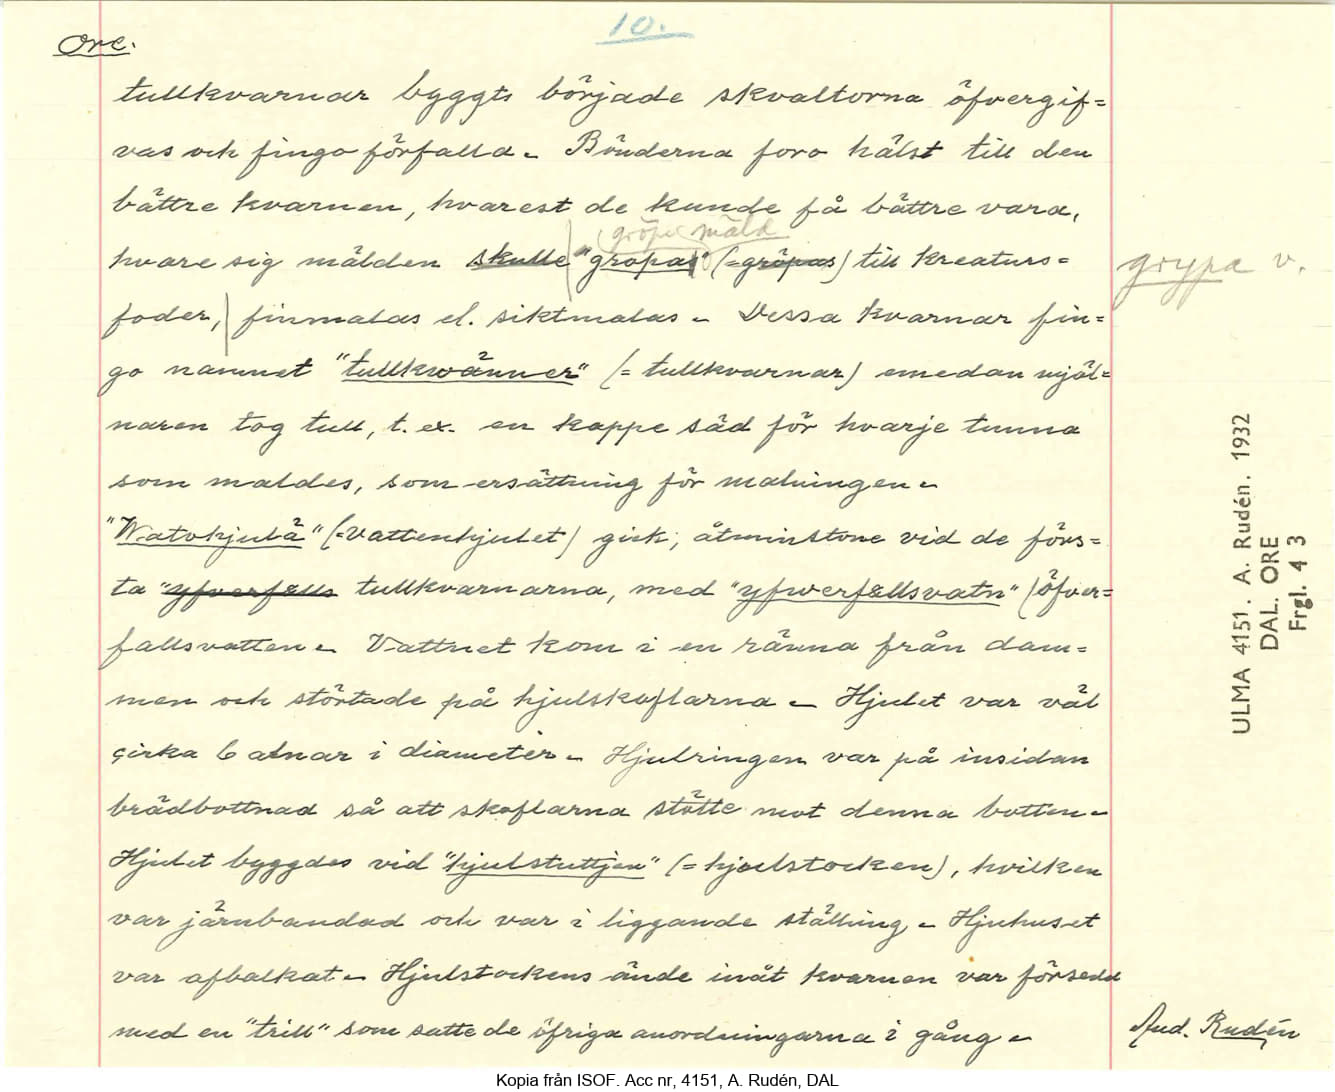 10.
Ore.
tullkvarnar byggts började skvaltorna öfvergif=
vas och fingo förfalla. Bönderna foro hälst till den
bättre kvarnen, hvarest de kunde få bättre vara,
gröpe mäld
hvare sig mälden skulle "gropas" (=gröpas) till kreaturs=
grypa v.
foder, finmalas el. siktmalas. Dessa kvarnar fin=
go namnet "tullkwänner" (= tullkvarnar) emedan mjöl=
naren tog tull, t. ex. en kappe säd för hvarje tunna
som maldes, som ersättning för malningen.
"Watohjulä" (=vattenhjulet) gick, åtminstone vid de förs=
ta "yfverfalls tullkvarnarna, med "yfwerfallsvatn" (öfver=
fallsvatten. Vattnet kom i en ränna från dam=
men och störtade på hjulskoflarna. Hjulet var väl
cirka 6 alnar i diameter. Hjulringen var på insidan
brädbottnad så att skoflarna stötte mot denna botten.
Hjulet byggdes vid "hjulstuttjen" (= hjulstocken), hvilken
var järnbandad och var i liggande ställning. Hjuhuset
var afbalkat. Hjulstockens ände inåt kvarnen var försedd
med en "trill" som satte de öfriga anordningarna i gång.
And. Rudén
ULMA 4151. A. Rudén. 1932
DAL. ORE
Frgl. 43
Kopia från ISOF. Acc nr, 4151, A. Rudén, DAL